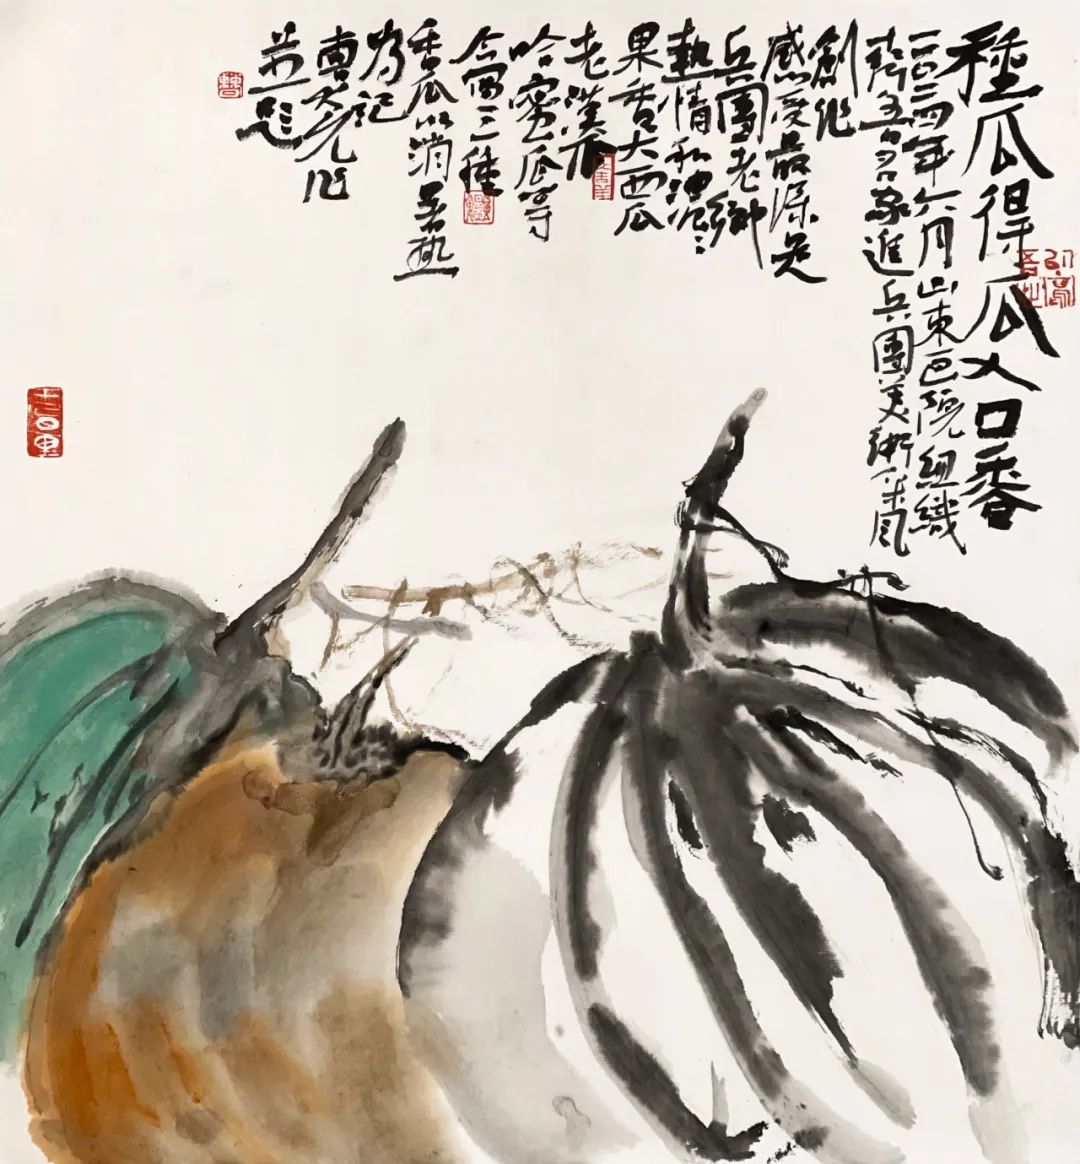 種瓜得瓜入口香
二〇二四年六月山東画院組織
齊魯名家進兵團美術采風
創作
感受最深是
兵團老鄉
熱情和
果香大西瓜
老漢瓜
哈蜜瓜等
今寫三種
香瓜以消暑熱
為記
作
並題